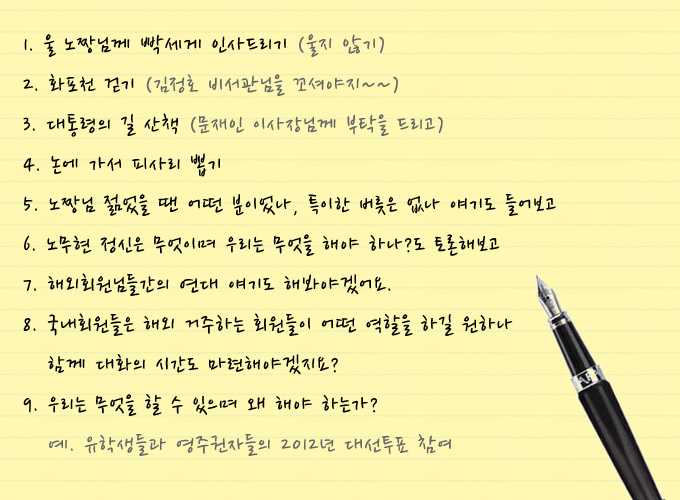 1. 울 노짱님께 빡세게 인사드리기 (울지 않기)
2. 화포천 걷기 (김정호 비서관님을 꼬셔야지~~)
3. 대통령의 길 산책 (문재인 이사장님께 부탁을 드리고)
4. 논에 가서 피사리 뽑기
5. 노짱님 젊었을 땐 어떤 분이었나, 특이한 버릇은 없나 얘기도 들어보고
6. 노무현 정신은 무엇이며 우리는 무엇을 해야 하나?도 토론해보고
7. 해외회원님들간의 연대 얘기도 해봐야겠어요.
8. 국내회원들은 해외 거주하는 회원들이 어떤 역할을 하길 원하나
함께 대화의 시간도 마련해야겠지요?
9. 우리는 무엇을 할 수 있으며 왜 해야 하는가?
예. 유학생들과 영주권자들의 2012년 대선투표 참여